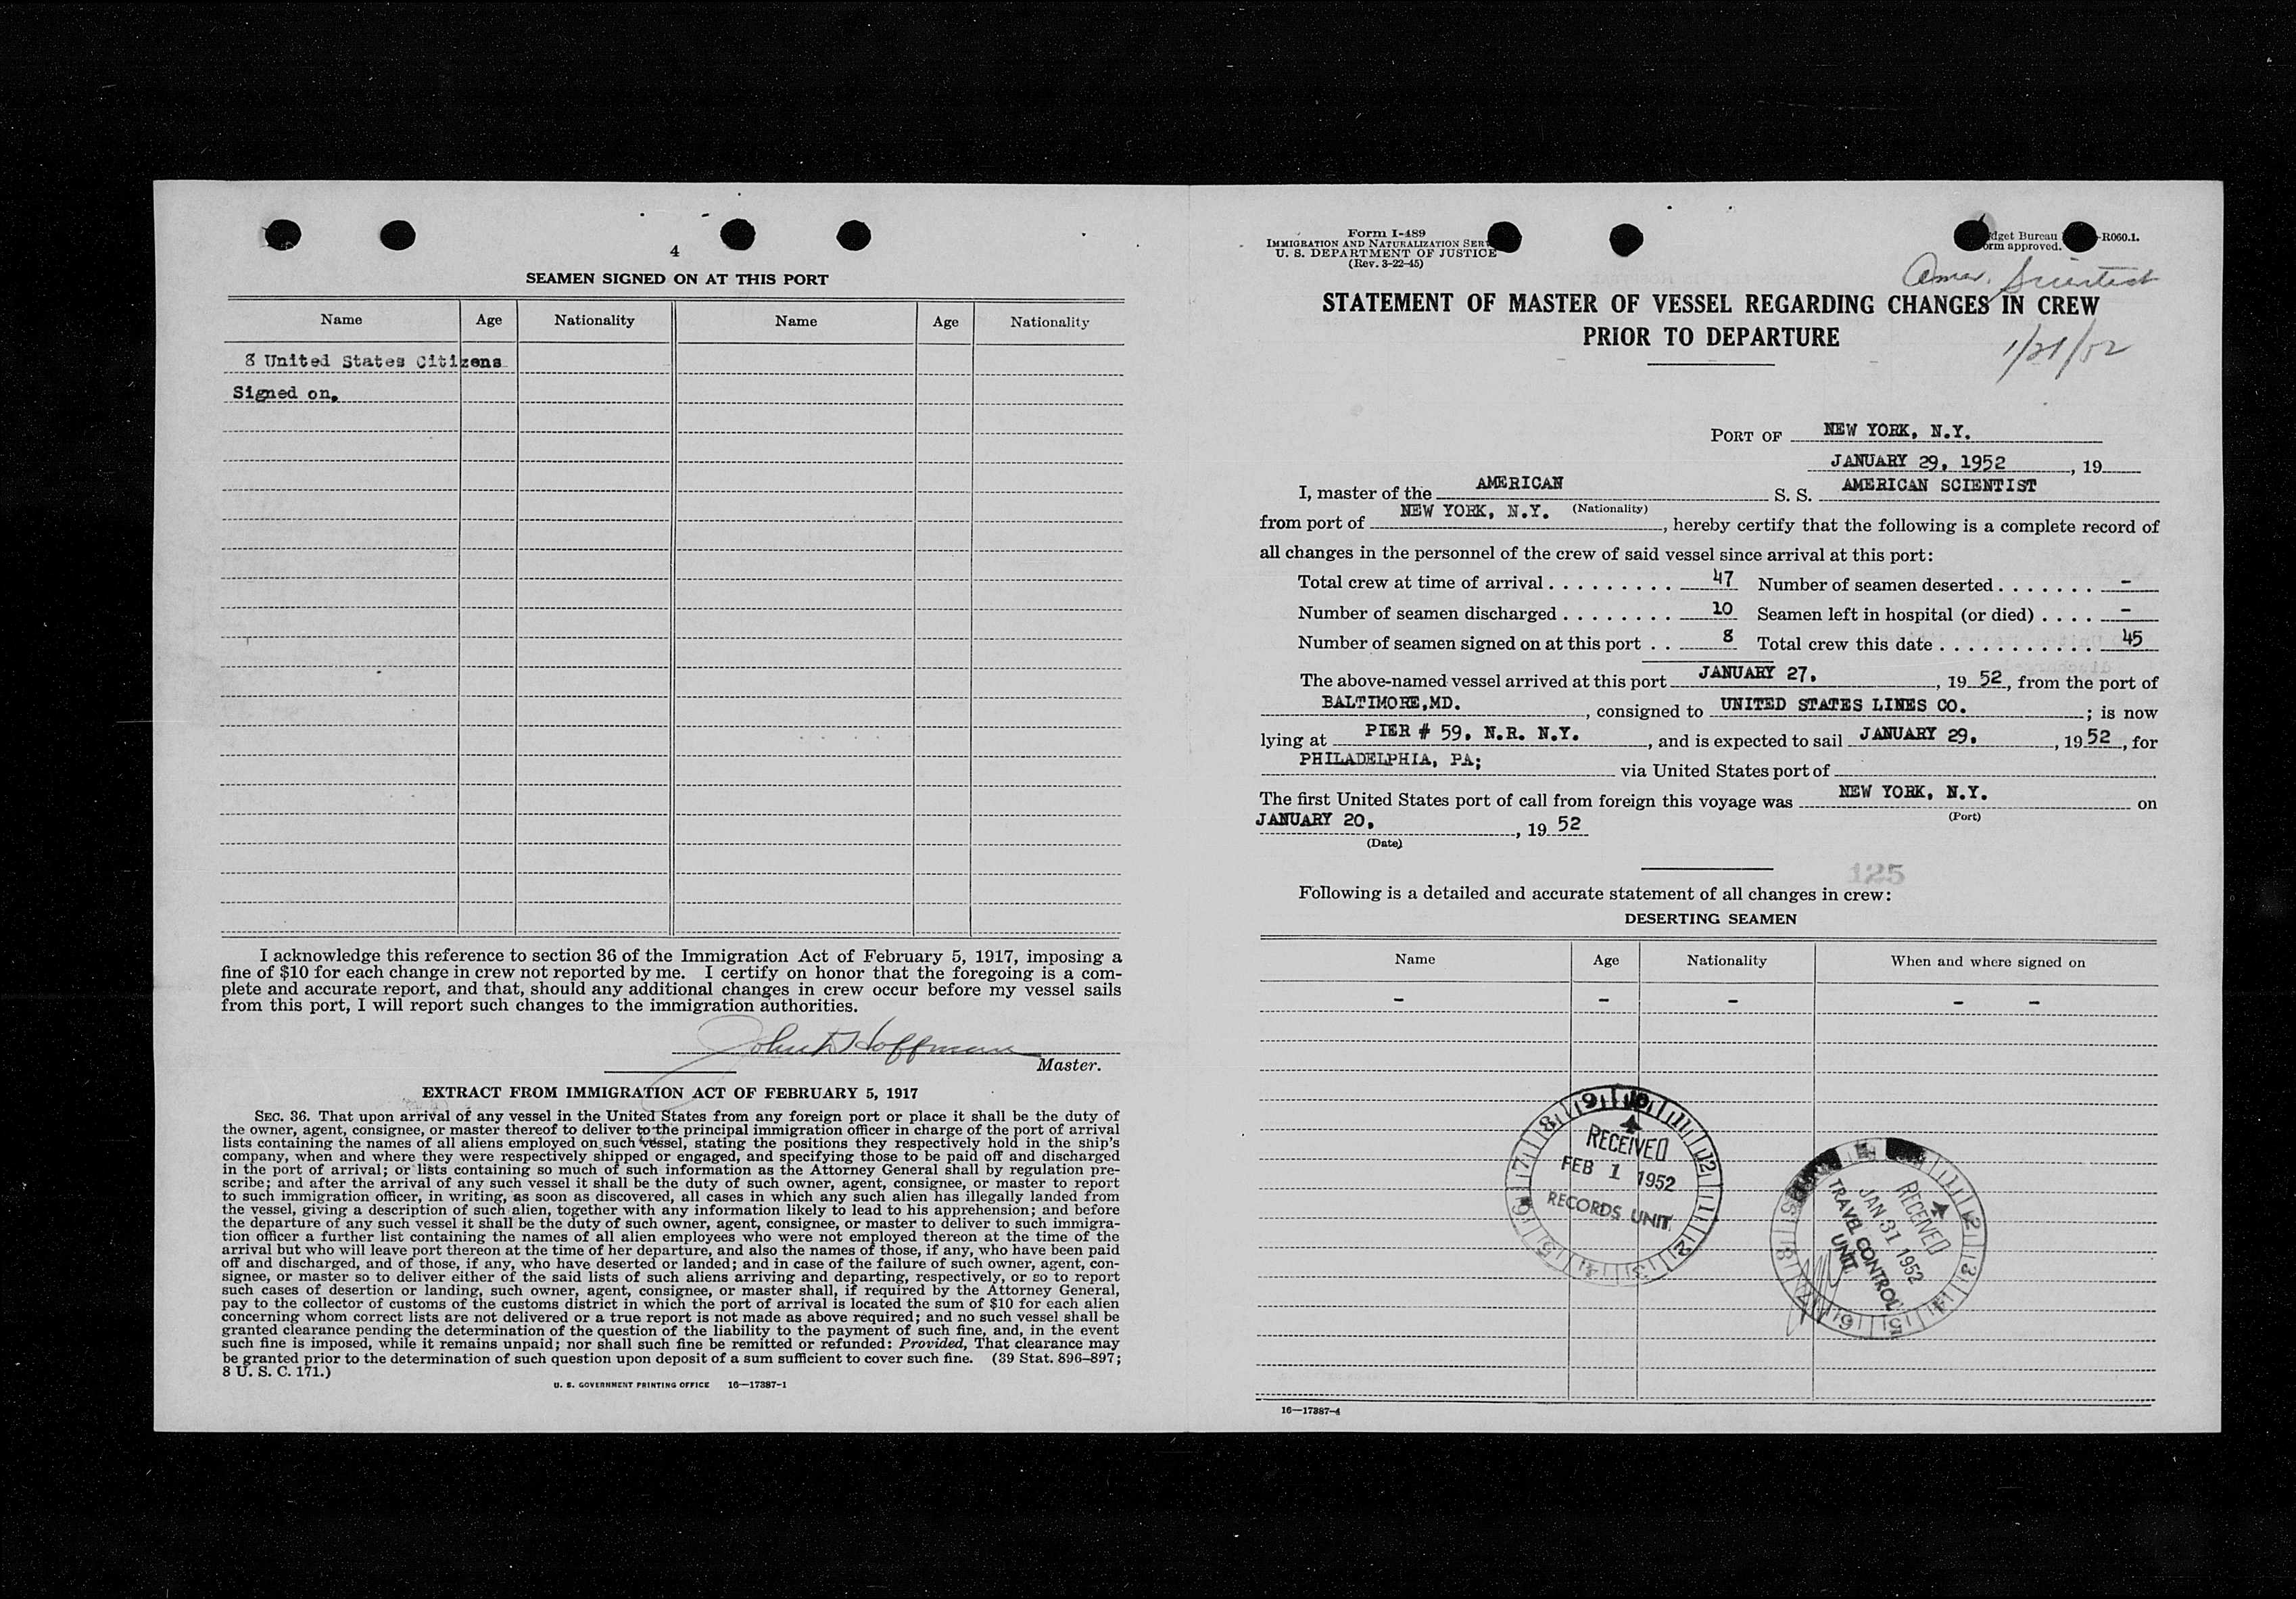 4
SEAMEN SIGNED ON AT THIS PORT
Name Age Nationality Name Age Nationality
8 United States Citizens
Signed on.
I acknowledge this reference to section 36 of the Immigration Act of February 5, 1917, imposing a
fine of $10 for each change in crew not reported by me. I certify on honor that the foregoing is a com-
plete and accurate report, and that, should any additional changes in crew occur before my vessel sails
from this port, I will report such changes to the immigration authorities.
John D Hoffman
Master.
EXTRACT FROM IMMIGRATION ACT OF FEBRUARY 5, 1917
SEC. 36. That upon arrival of any vessel in the United States from any foreign port or place it shall be the duty of
the owner, agent, consignee, or master thereof to deliver to the principal immigration officer in charge of the port of arrival
lists containing the names of all aliens employed on such vessel, stating the positions they respectively hold in the ship's
company, when and where they were respectively shipped or engaged, and specifying those to be paid off and discharged
in the port of arrival; or lists containing so much of such information as the Attorney General shall by regulation pre-
scribe; and after the arrival of any such vessel it shall be the duty of such owner, agent, consignee, or master to report
to such immigration officer, in writing, as soon as discovered, all cases in which any such alien has illegally landed from
the vessel, giving a description of such alien, together with any information likely to lead to his apprehension; and before
the departure of any such vessel it shall be the duty of such owner, agent, consignee, or master to deliver to such immigra-
tion officer a further list containing the names of all alien employees who were not employed thereon at the time of the
arrival but who will leave port thereon at the time of her departure, and also the names of those, if any, who have been paid
off and discharged, and of those, if any, who have deserted or landed; and in case of the failure of such owner, agent, con-
signee, or master so to deliver either of the said lists of such aliens arriving and departing, respectively, or so to report
such cases of desertion or landing, such owner, agent, consignee, or master shall, if required by the Attorney General,
pay to the collector of customs of the customs district in which the port of arrival is located the sum of $10 for each alien
concerning whom correct lists are not delivered or a true report is not made as above required; and no such vessel shall be
granted clearance pending the determination of the question of the liability to the payment of such fine, and, in the event
such fine is imposed, while it remains unpaid; nor shall such fine be remitted or refunded: Provided, That clearance may
be granted prior to the determination of such question upon deposit of a sum sufficient to cover such fine. (39 Stat. 896–897;
8 U. S. C. 171.)
U. S. GOVERNMENT PRINTING OFFICE 16—17387-1
Form I-489
IMMIGRATION AND NATURALIZATION SER
U. S. DEPARTMENT OF JUSTICE
(Rev. 3-22-45)
dget Bureau -R060.1.
orm approved.
Amer. Scientist
STATEMENT OF MASTER OF VESSEL REGARDING CHANGES IN CREW
PRIOR TO DEPARTURE
PORT OF NEW YORK, N.Y.
JANUARY 29, 1952, 19
I, master of the AMERICAN S. S. AMERICAN SCIENTIST
(Nationality)
from port of NEW YORK, N.Y., hereby certify that the following is a complete record of
all changes in the personnel of the crew of said vessel since arrival at this port:
Total crew at time of arrival . . . . . . . . . . 47 Number of seamen deserted . . . . . . . -
Number of seamen discharged . . . . . . . . 10 Seamen left in hospital (or died) . . . . -
Number of seamen signed on at this port . . 8 Total crew this date . . . . . . . . . . . 45
The above-named vessel arrived at this port JANUARY 27, , 19 52, from the port of
BALTIMORE,MD. , consigned to UNITED STATES LINES CO. ; is now
lying at PIER # 59, N.R. N.Y. , and is expected to sail JANUARY 29, , 19 52, for
PHILADELPHIA, PA; via United States port of
The first United States port of call from foreign this voyage was NEW YORK, N.Y. on
(Port)
JANUARY 20, , 19 52
(Date)
125
Following is a detailed and accurate statement of all changes in crew:
DESERTING SEAMEN
Name Age Nationality When and where signed on
- - - - -
RECEIVED
FEB 1 1952
RECORDS UNIT
RECEIVED
JAN 31 1952
TRAVEL CONTROL
UNIT
16—17387-4